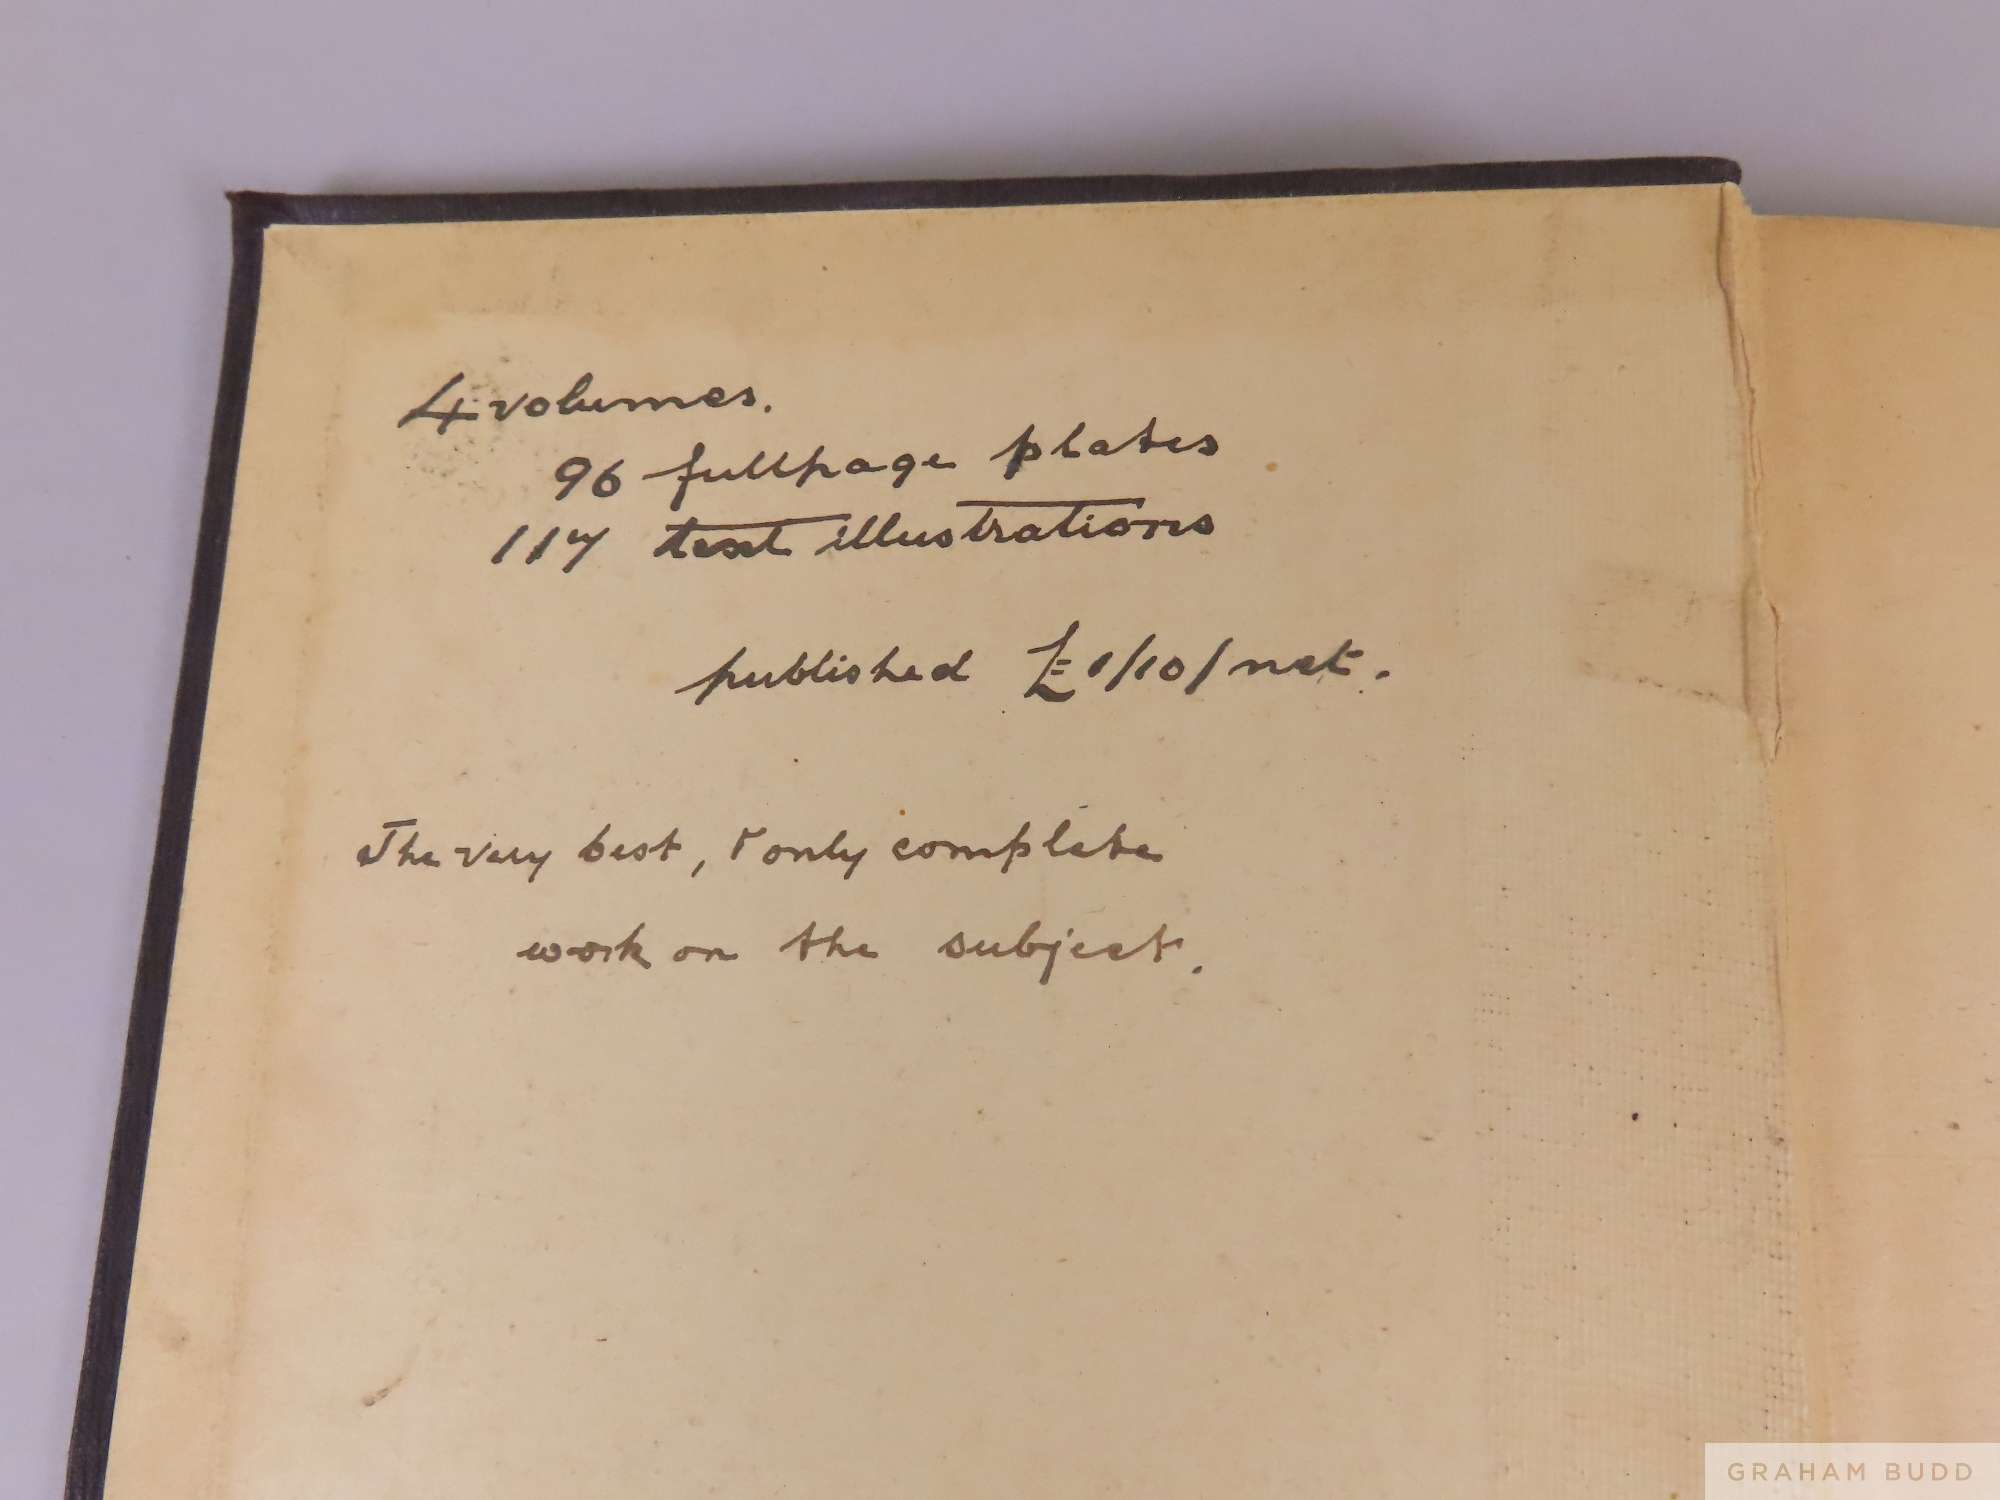 4 volumes.
96 fullpage plates
117 text illustrations
published £1/10/ net.
The very best, & only complete
work on the subject.
GRAHAM BUDD